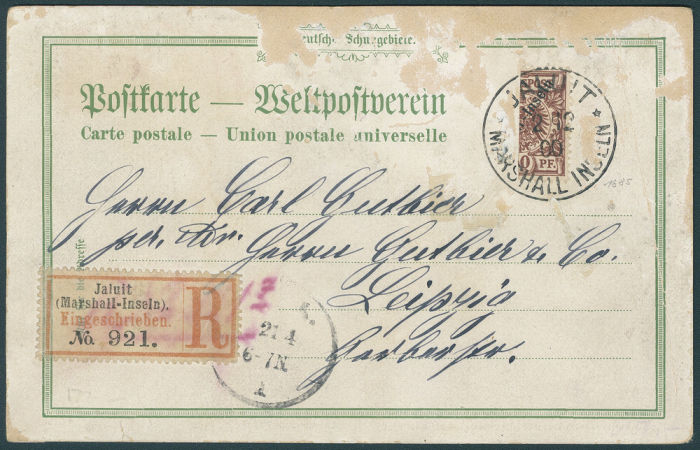 Deutsche Schutzgebiete.
Postkarte — Weltpostverein
Carte postale — Union postale universelle
JALUIT
MARSHALL INSELN
99
Inseln
0 PF.
1645
Herrn Carl Guthier
per. Adr. Herrn Guthier & Co.
Leipzig
Gerberstr.
Jaluit
(Marshall-Inseln).
Eingeschrieben.
No. 921.
R
21 4
6-7N.